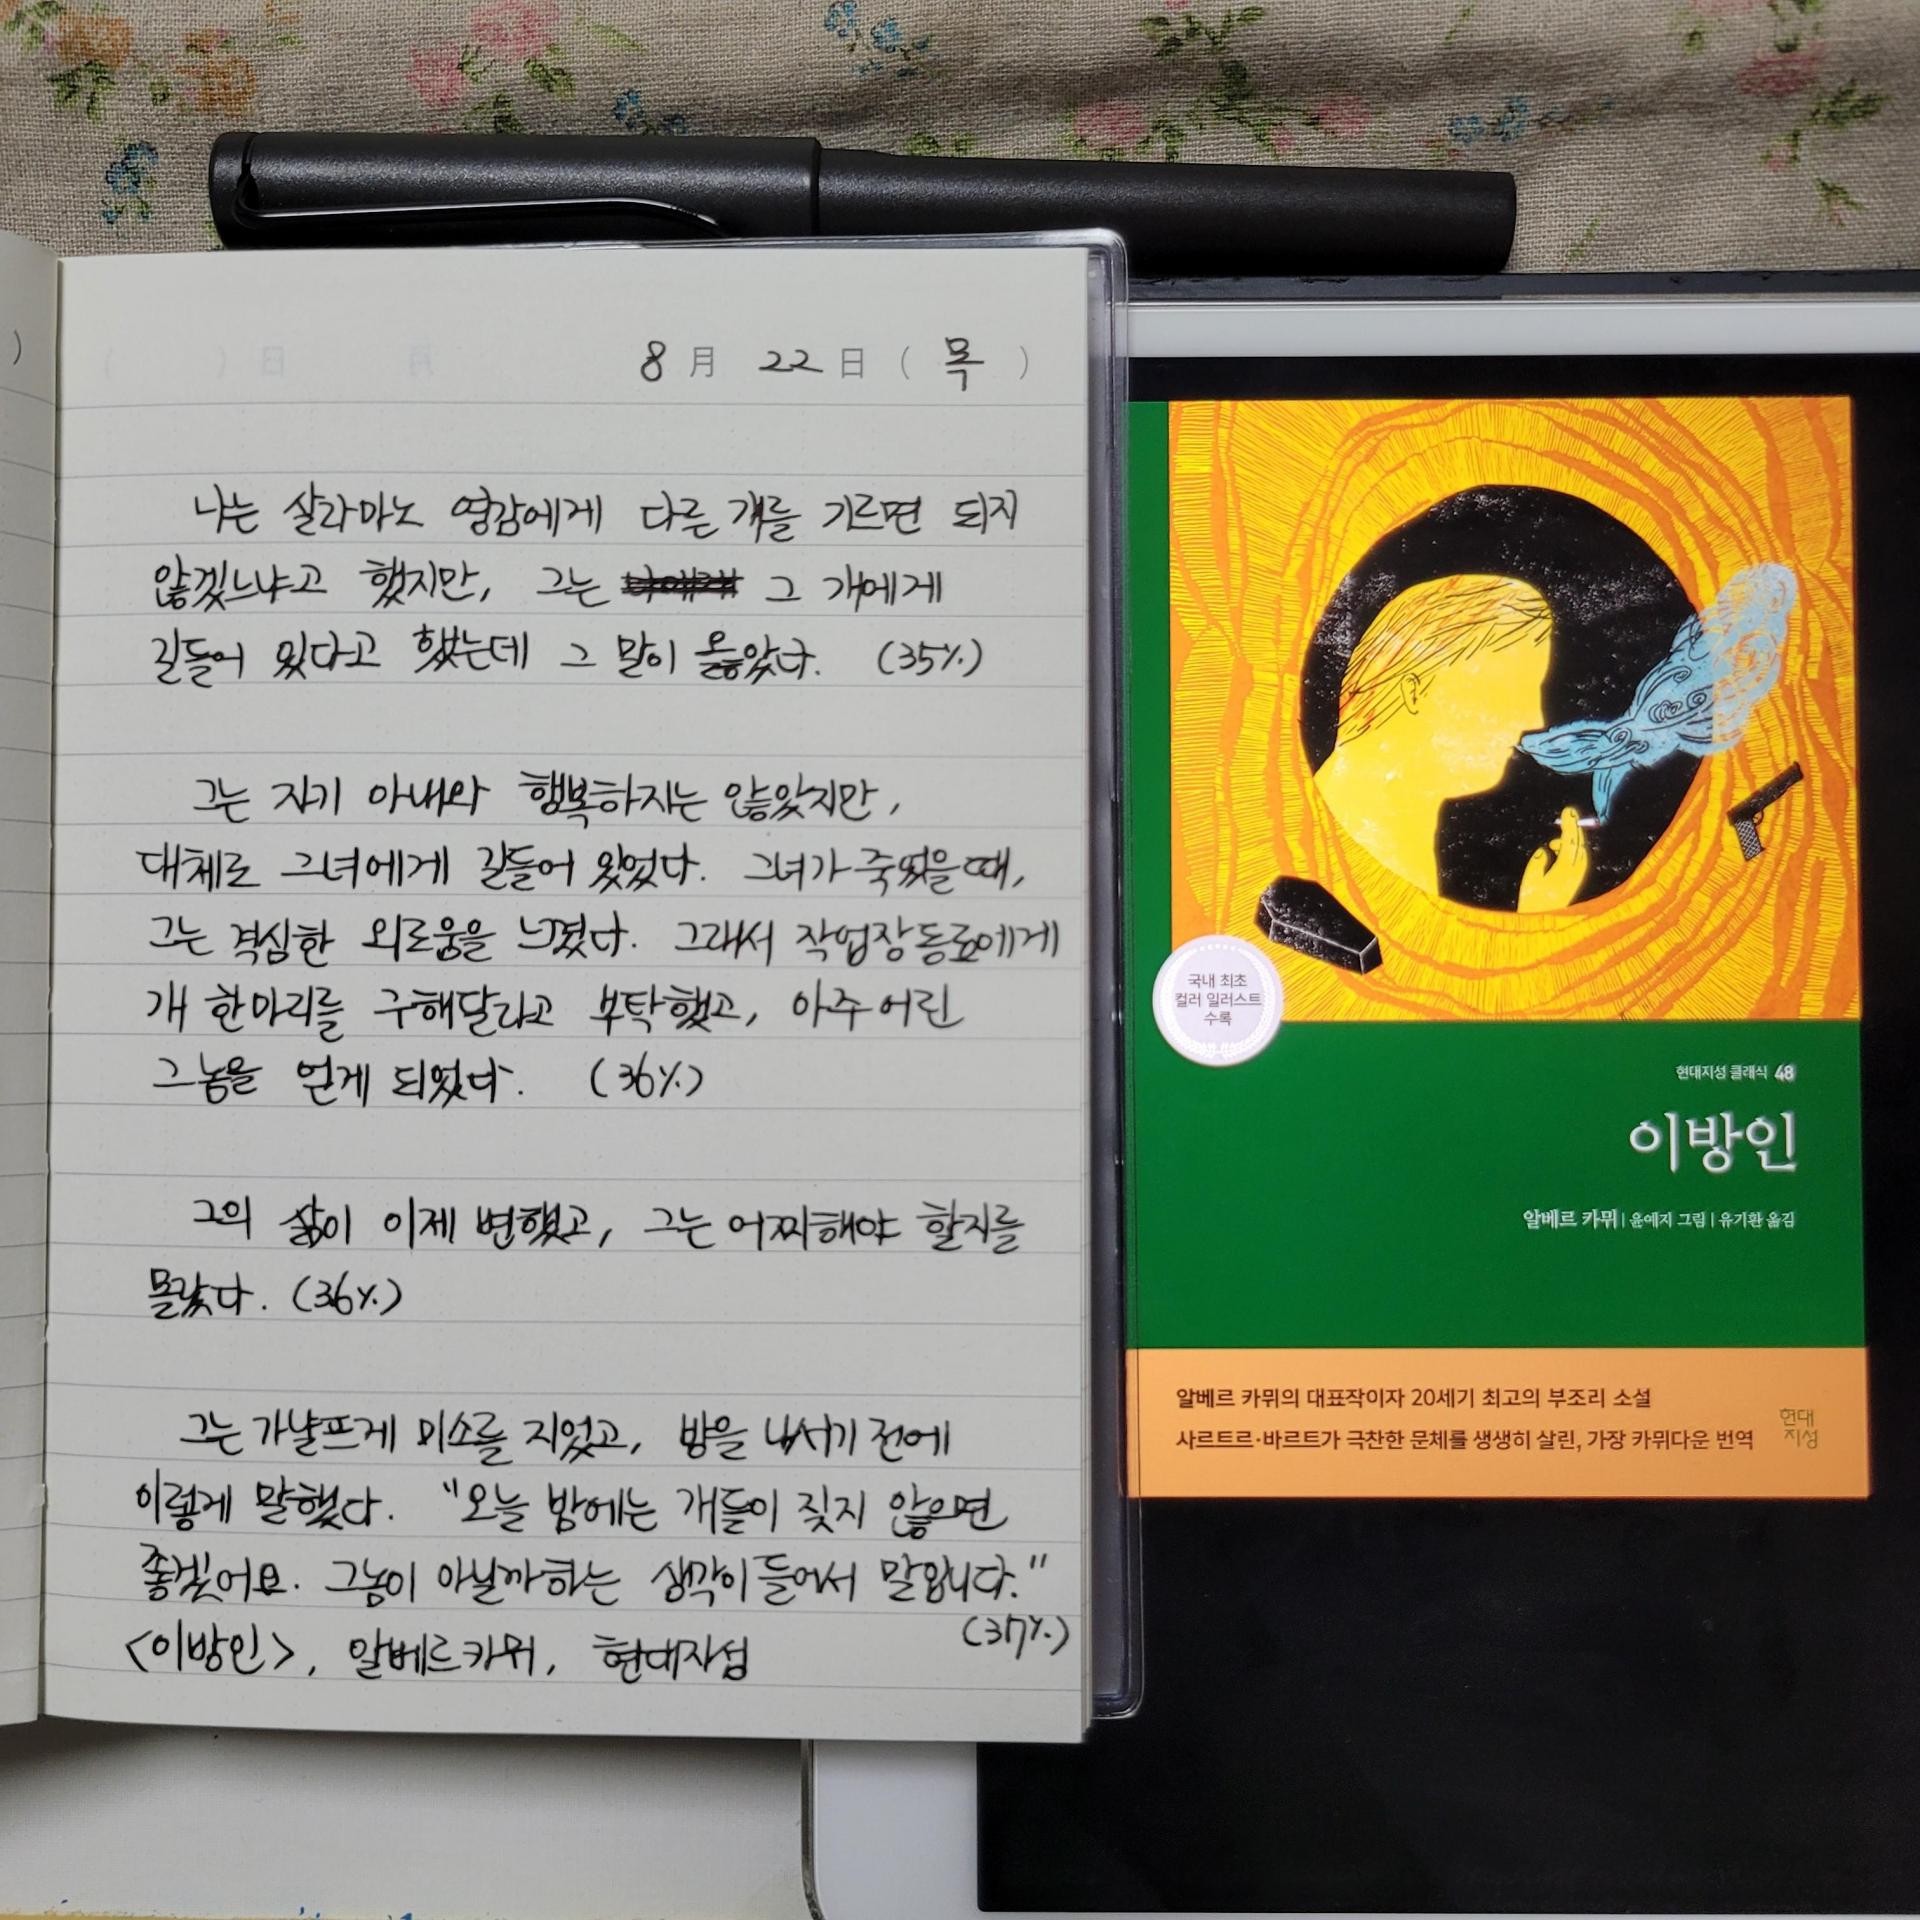 8 月 22 日 ( 목 )
나는 살라마노 영감에게 다른 개를 기르면 되지
않겠느냐고 했지만, 그는 그 개에게
길들어 있다고 했는데 그 말이 옳았다. (35%)
그는 자기 아내와 행복하지는 않았지만,
대체로 그녀에게 길들어 있었다. 그녀가 죽었을 때,
그는 격심한 외로움을 느꼈다. 그래서 작업장 동료에게
개 한마리를 구해달라고 부탁했고, 아주 어린
그놈을 얻게 되었다. (36%)
그의 삶이 이제 변했고, 그는 어찌해야 할지를
몰랐다. (36%)
그는 가냘프게 미소를 지었고, 방을 나서기 전에
이렇게 말했다. "오늘 밤에는 개들이 짖지 않으면
좋겠어요. 그놈이 아닐까하는 생각이 들어서 말입니다."
(37%)
<이방인>, 알베르 카뮈, 현대지성
국내 최초
컬러 일러스트
수록
현대지성 클래식 48
이방인
알베르 카뮈 | 윤예지 그림 | 유기환 옮김
알베르 카뮈의 대표작이자 20세기 최고의 부조리 소설
사르트르·바르트가 극찬한 문체를 생생히 살린, 가장 카뮈다운 번역
현대
지성